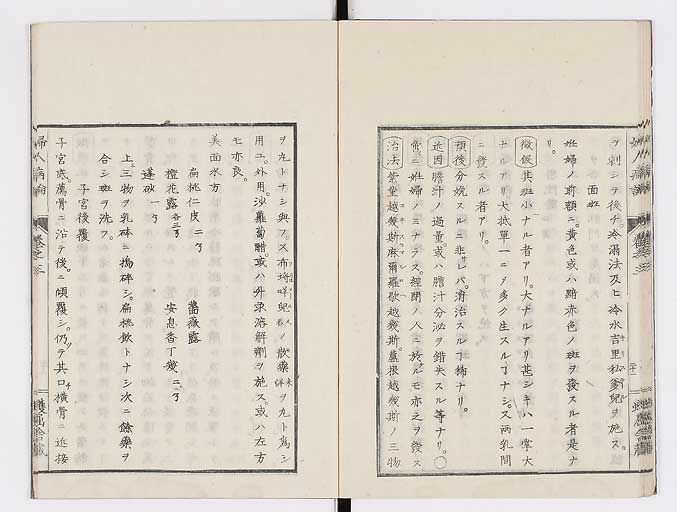 ヲ刺シテ後チ冷滿法及ヒ冷水吉里私爹兒ヲ施ス。
面斑
姙婦ノ前額ニ黄色或ハ黯赤色ノ斑ヲ發スル者是ナ
リ。
徴候 其斑小ナル者アリ。大ナルアリ甚シキハ一掌大
ナルアリ大抵單一ニヲ多ク生スルヿナシ。又兩乳間
ニ發スル者アリ。
預後 分娩スルニ非レバ。消治スルヿ稀ナリ。
近因 膽汁ノ過量。或ハ膽汁分泌ヲ錯失スル等ナリ。〇
帝ニ姙婦ノミナラス。經閉ノ人ニ於ルモ亦之ヲ發ス
治法 越幾斯 麻爾羅歇越幾斯。蘆根越幾斯ノ三物
ヲ丸トナシ與フ又布埒 兒ノ散藥 ヲ丸ト爲シ
用ユ。外用。沙蘿蔔醋。或ハ升汞溶解劑ヲ施ス。或ハ左方
モ亦良。
美面水方
扁桃仁皮二勺 薔薇露
橙花露各三勺 安息香丁幾二勺
蓬砂一勺
上三物ヲ乳砵ニ搗砕シ。扁桃飲トナシ次ニ餘藥ヲ
合シ斑ヲ洗フ。
子宮後覆
子宮底。薦骨ニ沿テ後ニ傾覆シ。仍テ其口横骨ニ近接
婦人病論
卷之三